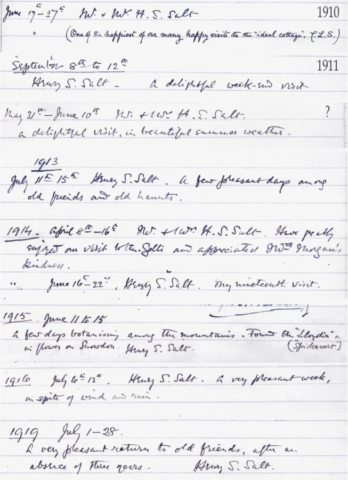 June 17th–27th Mr. & Mrs. H. S. Salt 1910
" (One of the happiest of our many happy visits to the "ideal cottage". C.L.S.)
September 8th to 12th 1911
Henry S. Salt. A delightful week-end visit
May 31st–June 10th Mr. & Mrs. H. S. Salt. ?
A delightful visit, in beautiful summer weather.
1913
July 11th 15th Henry S. Salt. A few pleasant days among
old friends and old haunts.
1914. April 8th–16th Mr. & Mrs. H. S. Salt. Have greatly
enjoyed our visit to the and appreciated Mrs. Morgan's
kindness.
" June 16th–22nd. Henry S. Salt. My nineteenth visit.
1915. June 11 to 15
A few days botanising among the mountains. Found the "Lloydia"
in flower on Snowdon Henry S. Salt. (Spiderwort)
1916 July 6th 12th. Henry S. Salt. A very pleasant week,
in spite of wind and rain.
1919 July 1–28.
A very pleasant return to old friends, after an
absence of three years. Henry S. Salt.